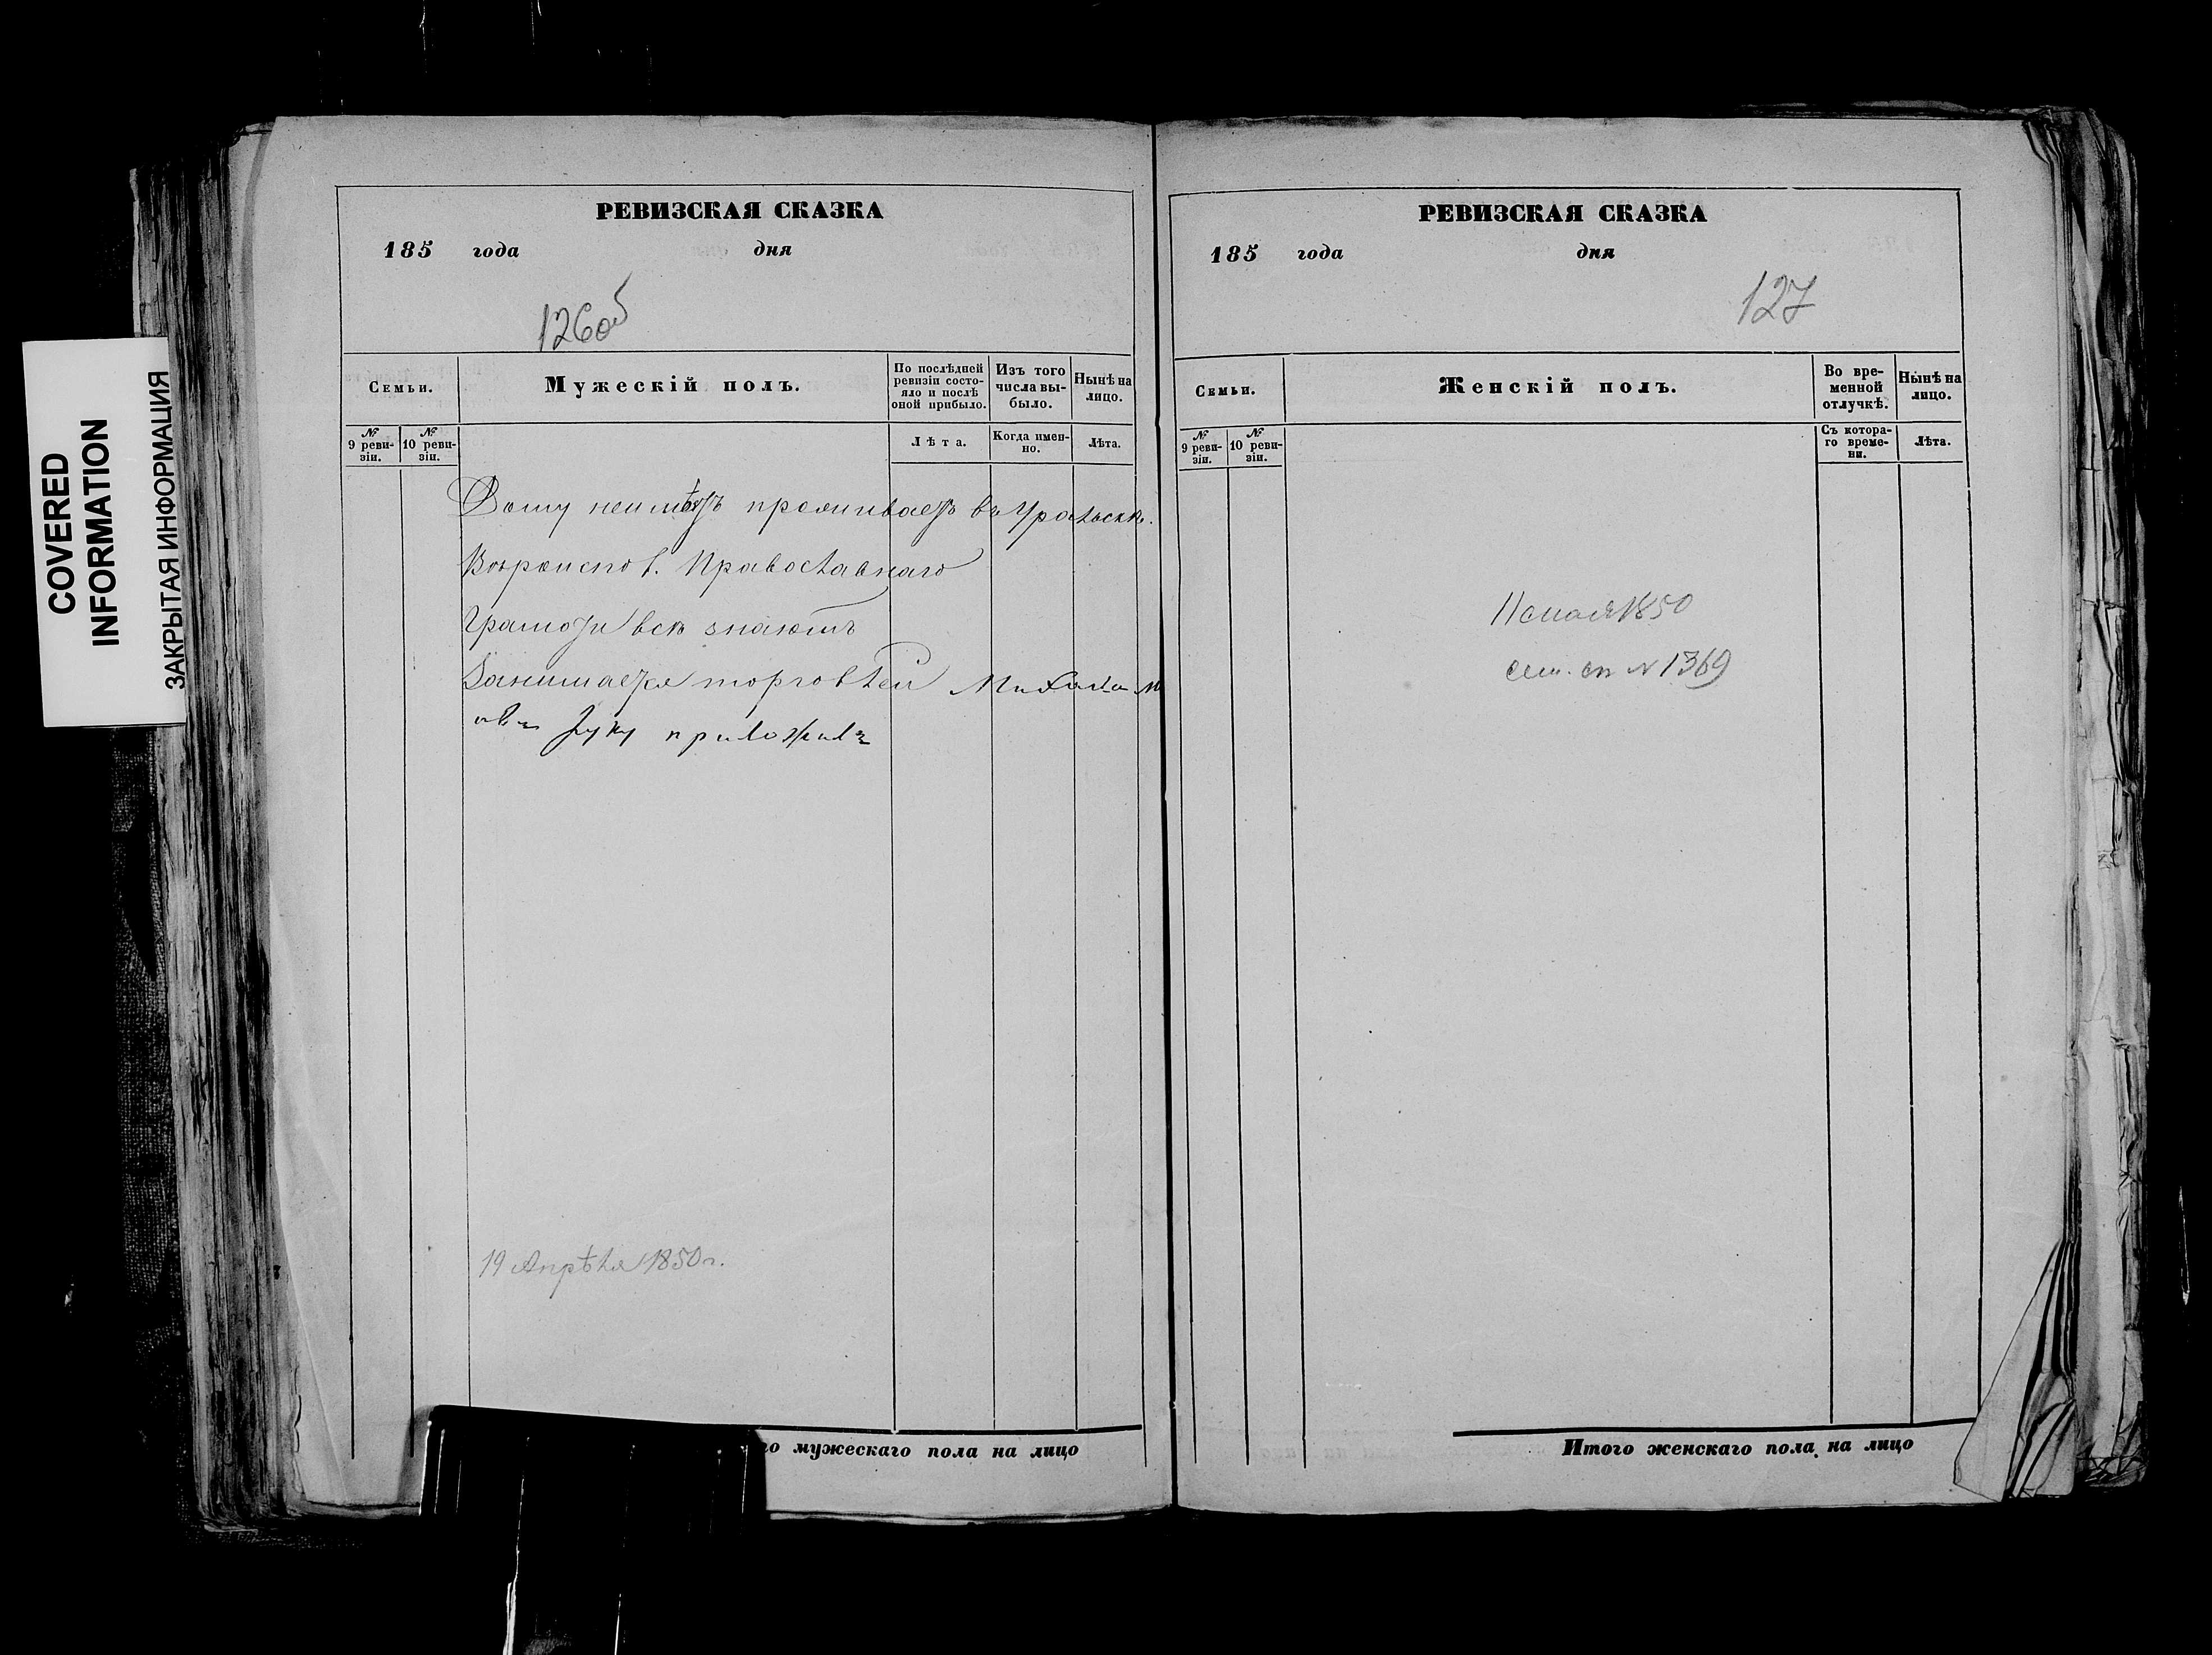 COVERED
INFORMATION
ЗАКРЫТАЯ ИНФОРМАЦИЯ
РЕВИЗСКАЯ СКАЗКА
185 года дня
126об
Семьи. Мужескій полъ. По послѣдней ревизіи состояло и послѣ оной прибыло. Изъ того числа выбыло. Нынѣ на лицо.
№ 9 ревизіи. № 10 ревизіи. Лѣта. Когда именно. Лѣта.
Дому неимѣетъ проживаетъ въ Уральскѣ.
Вѣроиспов. Православнаго
Грамоти всѣ знаютъ
Занимается торговлей Михаила
руку приложилъ
19 Апрѣля 1850 г.
го мужескаго пола на лицо
РЕВИЗСКАЯ СКАЗКА
185 года дня
127
Семьи. Женскій полъ. Во временной отлучкѣ. Нынѣ на лицо.
№ 9 ревизіи. № 10 ревизіи. Съ котораго времени. Лѣта.
1850
сем. сп № 1369
Итого женскаго пола на лицо